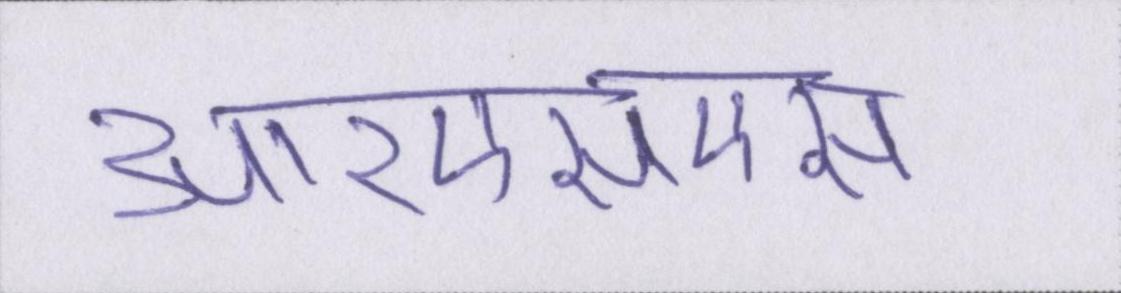 आरएसएस